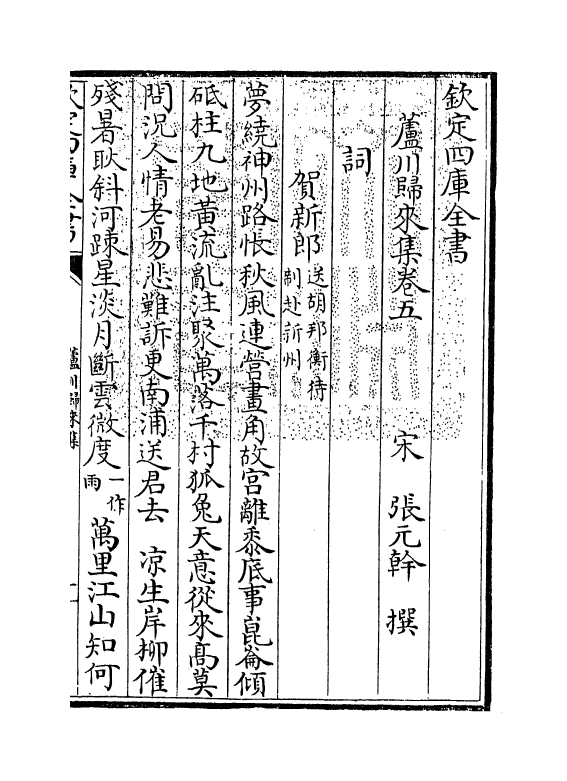 欽定四庫全書
蘆川歸來集卷五
宋 張元幹 撰
詞
賀新郎送胡邦衡待
制赴新州
夢繞神州路悵秋風連營畫角故宮離黍底事崑崙傾
砥柱九地黃流亂注聚萬落千村狐兔天意從來髙莫
問況人情老易悲難訴更南浦送君去 凉生岸柳催
殘暑耿斜河疎星淡月斷雲微度一作
雨萬里江山知何
欽定四庫全書
蘆川歸來集